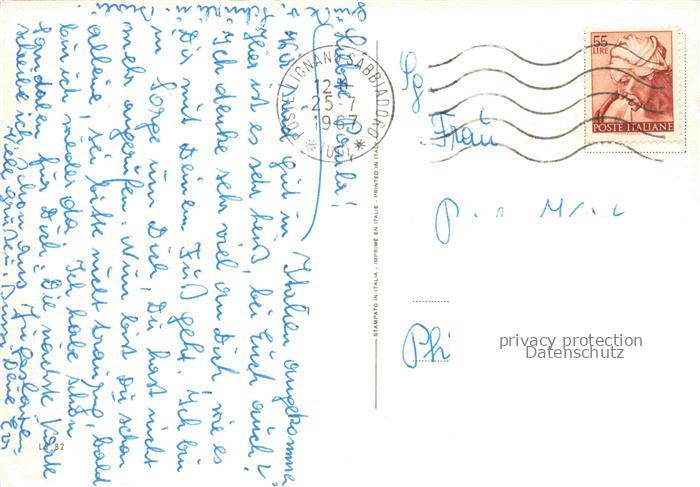 Liebe Paula!
Wir sind gut in Italien angekommen
Hier ist es sehr heiß, bei Euch auch?
Ich denke sehr viel an Dich wie es
Dir mit Deinem Fuß geht. Ich bin
in Sorge um Dich, Du hast nicht
mehr angerufen. Nun bist Du schon
alleine, sei bitte nicht traurig, bald
bin ich wieder da. Ich habe schon
Sandalen für Dich. Die nächste Karte
schreibe ich schon aus Jugoslawien
Viele Grüße u. Bussi Deine
POSTE LIGNANO SABBIADORO
12-
25-7
1967
(UD)
55
LIRE
POSTE ITALIANE
Sg.
Frau
Phi
STAMPATO IN ITALIA - IMPRIMÉ EN ITALIE - PRINTED IN ITALY
82
privacy protection
Datenschutz